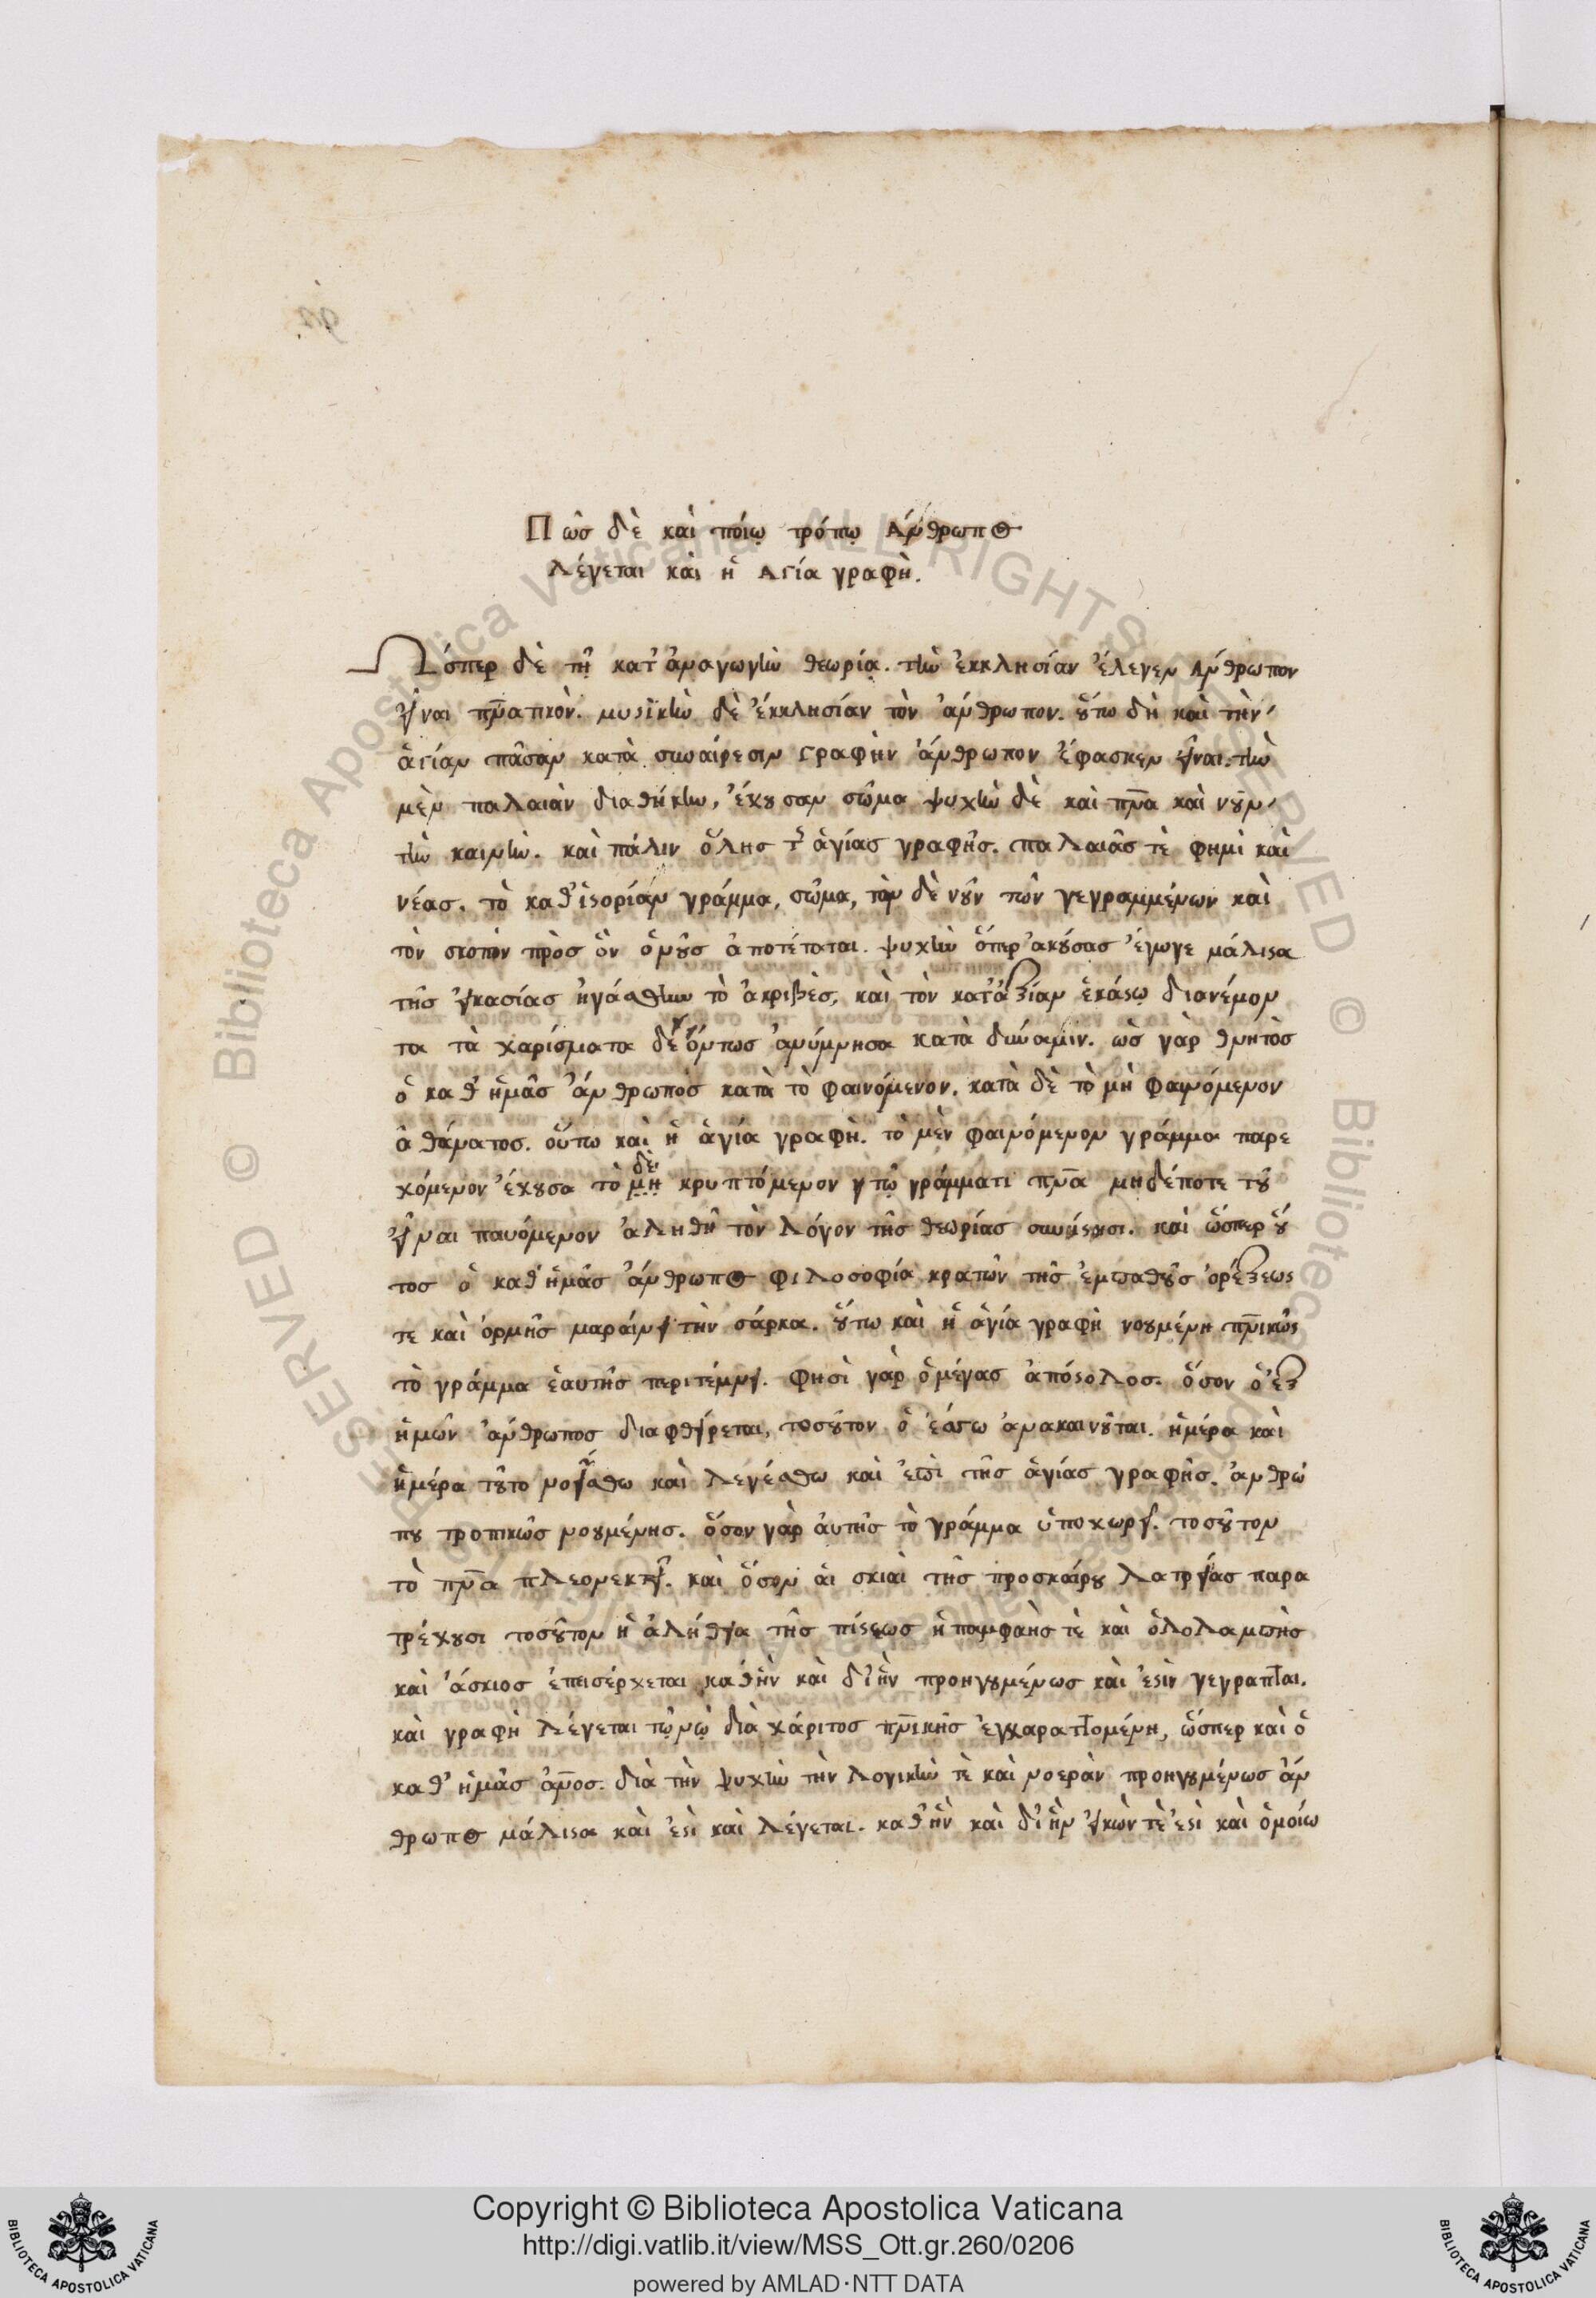 Πῶσ δὲ καὶ ποίῳ τρόπῳ Ἄνθρωπος
λέγεται καὶ ἡ ἁγία γραφὴ.
Ὥσπερ δὲ τῆ κατ' ἀναγωγὴν θεωρίᾳ. τὴν ἐκκλησίαν ἔλεγεν ἄνθρωπον
εἶναι πν̅ατικὸν. μυστικὴν δὲ ἐκκλησίαν τὸν ἄνθρωπον. οὕτω δὴ καὶ τὴν
ἁγίαν πᾶσαν κατὰ συναίρεσιν γραφὴν ἄνθρωπον ἔφασκεν εἶναι. τὴν
μὲν παλαιὰν διαθήκην, ἔχουσαν σῶμα ψυχὴν δὲ καὶ πν̅α καὶ νοῦν
τὴν καινὴν. καὶ πάλιν ὅλησ τῆς ἁγίας γραφῆσ. παλαιᾶσ τὲ φημὶ καὶ
νέασ. τὸ καθ' ἱστορίαν γράμμα, σῶμα, τὸν δὲ νοῦν τῶν γεγραμμένων καὶ
τὸν σκοπὸν πρὸσ ὃν ὁ νοῦσ ἀποτέταται. ψυχὴν ὅπερ ἀκούσασ ἔγωγε μάλιστα
τῆσ εἰκασίασ ἠγάσθην τὸ ἀκριβὲσ, καὶ τὸν κατ' ἀξίαν ἑκάστῳ διανέμον
τα τὰ χαρίσματα δεόντωσ ἀνύμνησα κατὰ δύναμιν. ὡσ γὰρ θνητὸσ
ὁ καθ' ἡμᾶσ ἄνθρωποσ κατὰ τὸ φαινόμενον. κατὰ δὲ τὸ μὴ φαινόμενον
ἀθάνατοσ. οὕτω καὶ ἡ ἁγία γραφὴ. τὸ μὲν φαινόμενον γράμμα παρε
χόμενον ἔχουσα τὸ δὲ μὴ κρυπτόμενον ἐν τῷ γράμματι πν̅α μηδέποτε τοῦ
εἶναι παυόμενον ἀληθῆ τὸν λόγον τῆσ θεωρίασ συνίστησι. καὶ ὥσπερ οὗ
τοσ ὁ καθ' ἡμᾶσ ἄνθρωπος φιλοσοφία κρατῶν τῆσ ἐμπαθοῦσ ὀρέξεωσ
τε καὶ ὁρμῆσ μαραίνει τὴν σάρκα. οὕτω καὶ ἡ ἁγία γραφὴ νουμένη πν̅ικῶς
τὸ γράμμα ἑαυτῆσ περιτέμνει. φησὶ γὰρ ὁ μέγασ ἀπόστολοσ. ὅσον ὁ ἐξ
ἡμῶν ἄνθρωποσ διαφθείρεται, τοσοῦτον ὁ ἔσω ἀνακαινοῦται. ἡμέρα καὶ
ἡμέρα τοῦτο νοείσθω καὶ λεγέσθω καὶ ἐπὶ τῆσ ἁγίασ γραφῆσ. ἀνθρώ
που τροπικῶσ νουμένησ. ὅσον γὰρ αὐτῆσ τὸ γράμμα ὑποχωρεῖ. τοσοῦτον
τὸ πν̅α πλεονεκτεῖ. καὶ ὅσον αἱ σκιαὶ τῆσ προσκαίρου λατρείασ παρα
τρέχουσι τοσοῦτον ἡ ἀλήθεια τῆσ πίστεωσ ἡ παμφαὴσ τὲ καὶ ὁλολαμπὴσ
καὶ ἄσκιοσ ἐπεισέρχεται καθ' ἣν καὶ δι' ἣν προηγουμένωσ καὶ ἐστὶν γέγραπται.
καὶ γραφὴ λέγεται τῷ νῷ διὰ χάριτοσ πν̅ικῆσ ἐγχαραττομένη, ὥσπερ καὶ ὁ
καθ' ἡμᾶσ ἀν̅οσ. διὰ τὴν ψυχὴν τὴν λογικὴν τὲ καὶ νοερὰν προηγουμένωσ ἄν
θρωπος μάλιστα καὶ ἐστὶ καὶ λέγεται. καθ' ἣν καὶ δι' ἣν εἰκὼν τὲ ἐστὶ καὶ ὁμοίω
Copyright © Biblioteca Apostolica Vaticana
http://digi.vatlib.it/view/MSS_Ott.gr.260/0206
powered by AMLAD·NTT DATA